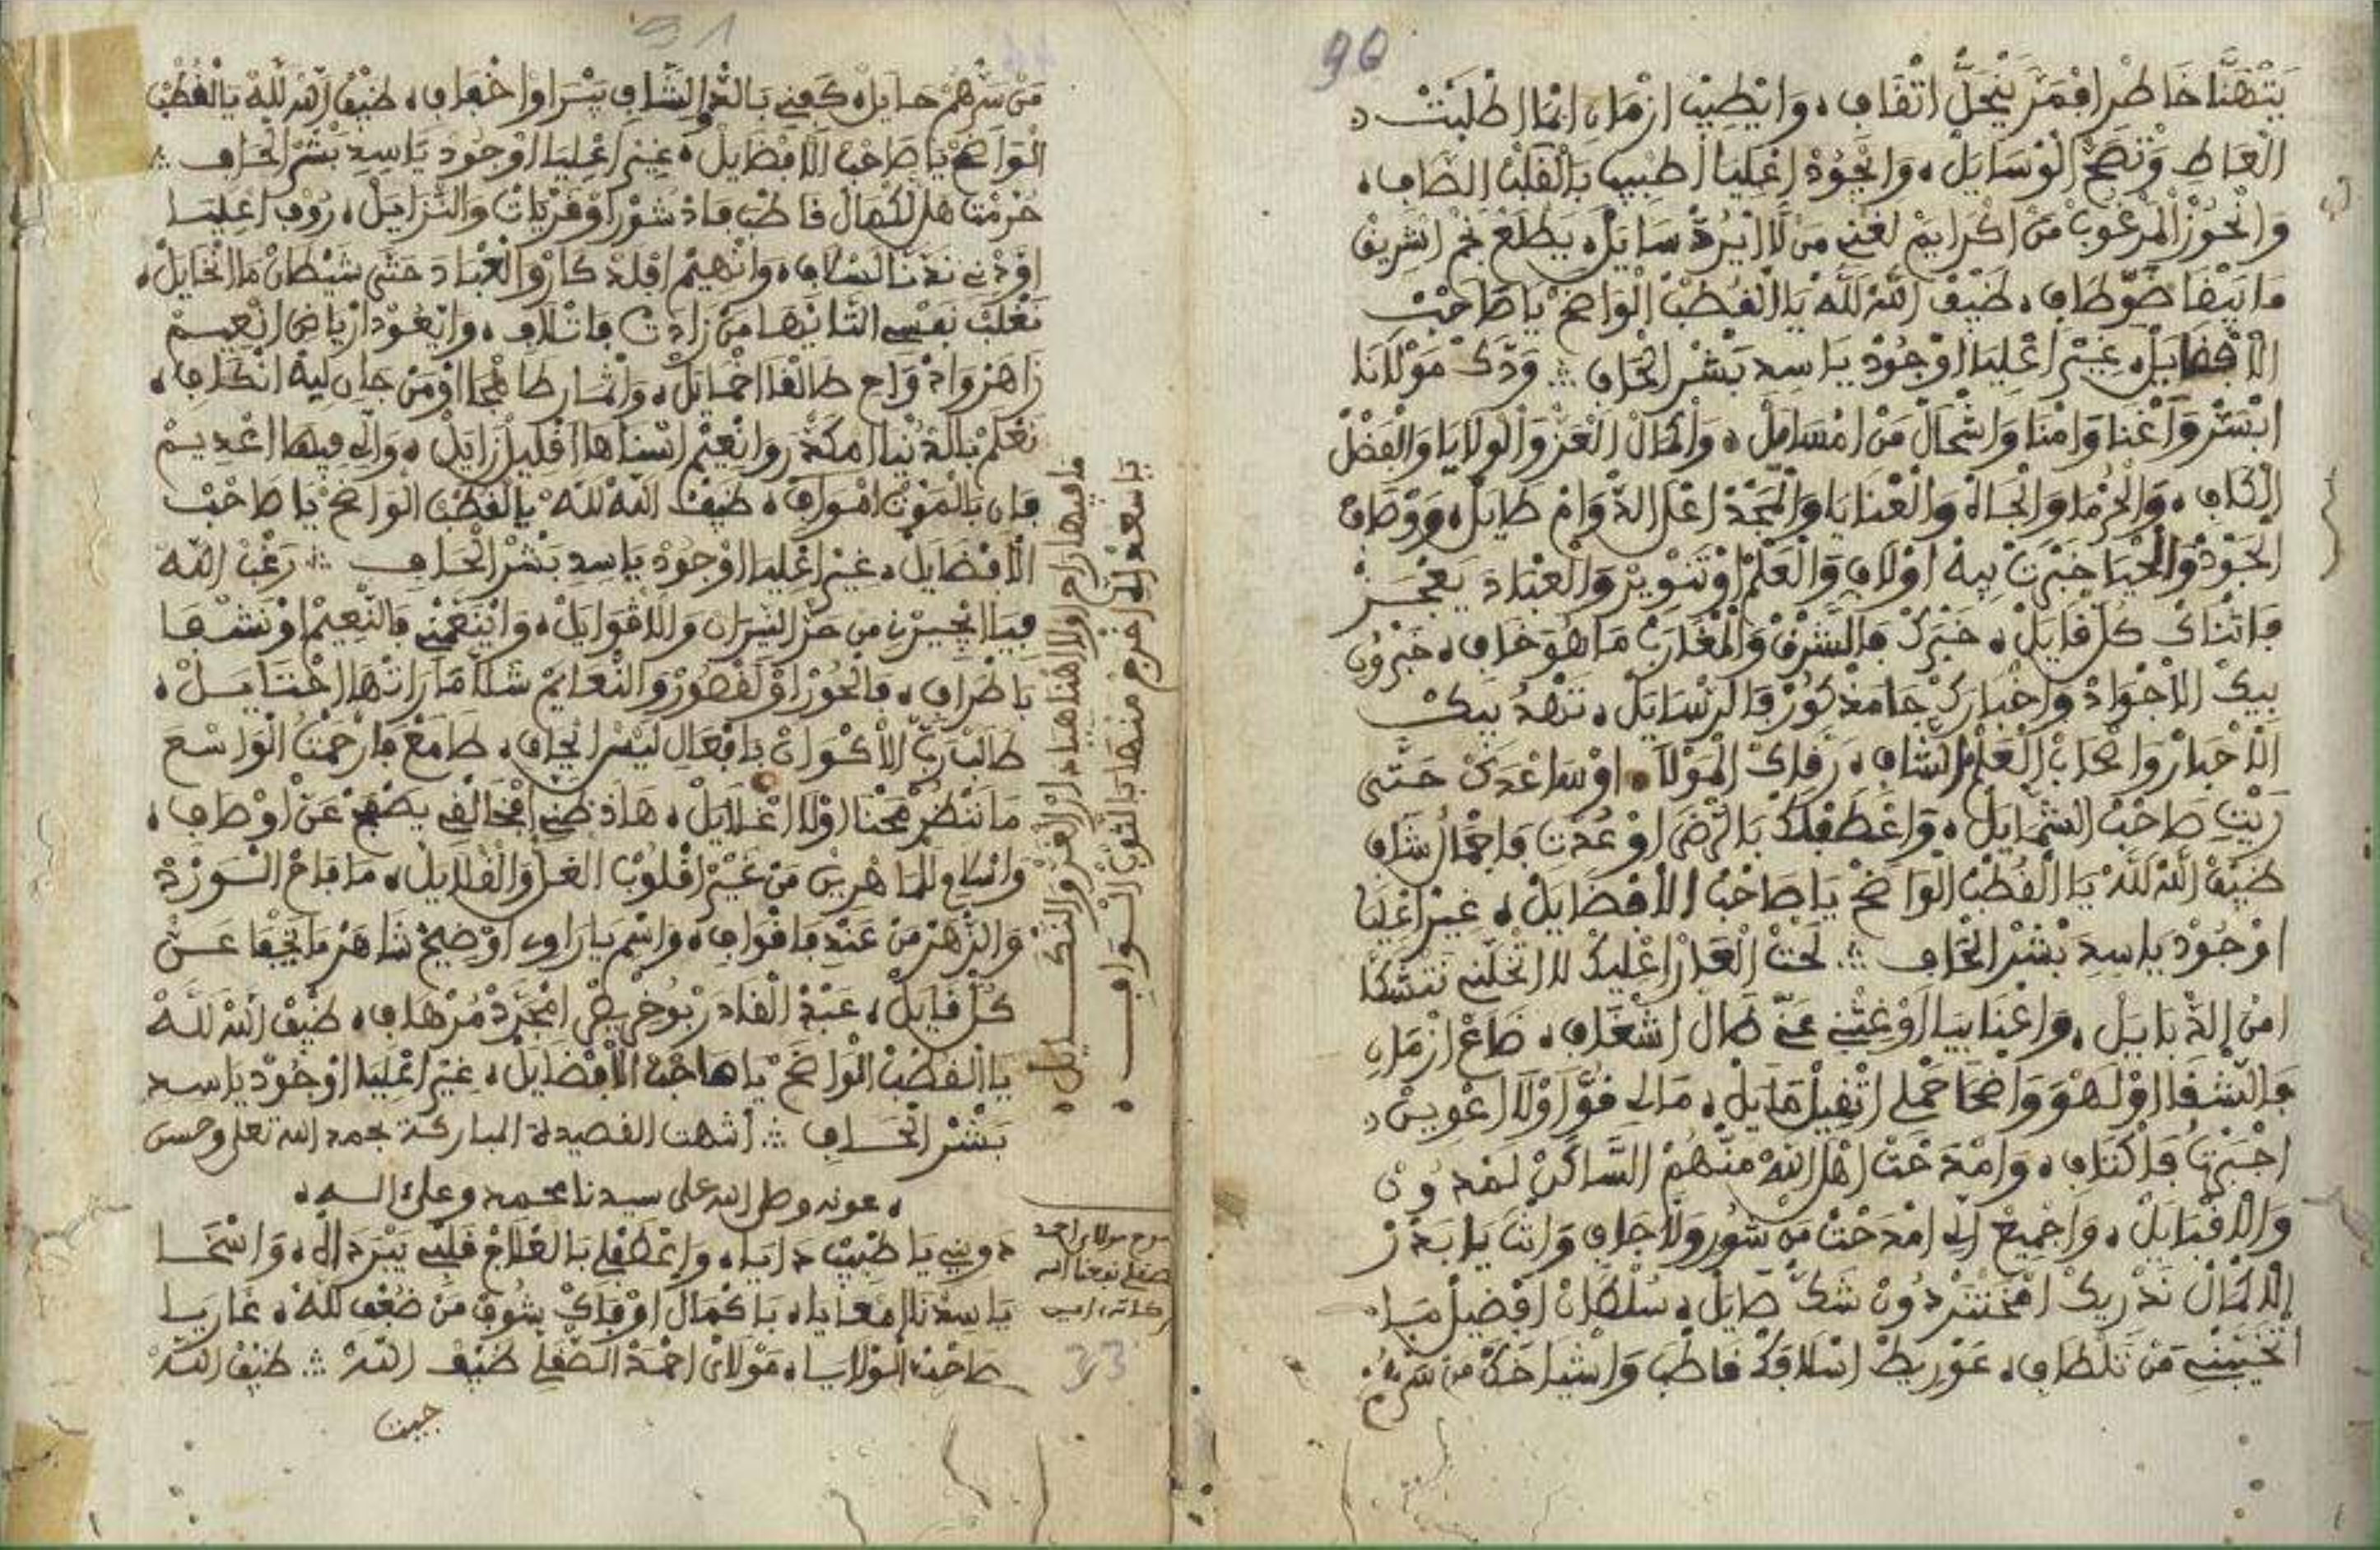 90
يَتْهَنَّا خَاطْرِ افْمَرْ يَنْجَلَّ اتْقَافِ، وَايْطِيبْ ازْمَانِ انَّا اطْلَبْتْ
الْعَاطِ وَتْصَحّْ الْوْسَايَلْ، وَايْجُودْ اعْلِيَا اطْبِيبِ بَالْقَلْبْ الصَّافِ،
وَانْحُوزْ الْمَرْغُوبْ مَنْ اكْرَايَمْ لَغْنِي مَنْ لَا ايْرُدّْ سَايَلْ، يَطْلَعْ نَجْمْ اشْرِيقْ
مَا يَبْقَا ضَوّْ طَافِ، ضَيْفْ اللَّهْ لَلَّهْ يَا الْقُطْبْ الْوَاضَحْ يَا صَاحَبْ
الْافْضَايَلْ، غِيرْ اعْلِيَا اوْجُودْ يَا سِيدِ بَشْرْ الْحَافِ ؞ وَدَّكْ مَوْلَانَا
ابْسَرّْ وَاغْنَا وَامْنَا وَاشْحَالْ مَنْ امْسَايَلْ، وَاكْمَالْ الْعَزّْ وَالْوْلَايَا وَالْفَضْلْ
الْكَافِ، وَالْحُرْمَا وَالْجَاهْ وَالْعْنَايَا وَالْمَجْدْ اعْلَ الدّْوَامْ طَايَلْ، وَوْصَافْ
الْجُودْ وَالْحْيَا خَبْرَتْ بِيهْ اوْلَافِ وَالْعَلْمْ اوْتَنْوِيرْ وَالْعْبَادَ يَعْجَزْ
فَاثْنَاكْ كُلّْ قَايَلْ، خَبْرَكْ فَالشَّرْقْ وَالْمْغَارَبْ مَا هُوَ خَافِ، خَبْرُونِ
بِيكْ الْاجْوَادْ وَاخْبَارَكْ جَا مَذْكُورْ فَالرّْسَايَلْ، تَزْهَدْ بِيكْ
الْاحْبَارْ وَاصْحَابْ الْعَلْمْ الشَّافِ، رَقَّاكْ الْمَوْلَا اوْسَاعْدَكْ حَتَّى
رِيتِ صَاحَبْ الشّْمَايَلْ، وَاعْطَفْلَكْ بَالرّْضَى اوْعُدْتِ فَاجْمَالْ شَافِ
ضَيْفْ اللَّهْ لَلَّهْ يَا الْقُطْبْ الْوَاضَحْ يَا صَاحَبْ الْافْضَايَلْ، غِيرْ اعْلِيَا
اوْجُودْ يَا سِيدِ بَشْرْ الْحَافِ ؞ لَحْتْ الْعَارْ اعْلِيكْ لَا اتْخَلِّينِي نَتْشَكَّا
امْنَ الذّْبَايَلْ، وَاعْنَا بِيَا اوْغِثْنِي عَنِّي طَالْ اشْغَافِ، ضَاعْ ازْمَانِ
فَالشّْقَا اوْلَهْوَ وَاضْحَا حَمْلِي اثْقِيلْ مَايَلْ، مَالِي قُوَّا اوْلَا اعْوِينْ
اجْبَرْتُ فَاكْتَافِ، وَامْدَحْتْ اهْلَ اللَّهْ مَنْهُمْ السَّاكَنْ لَمْدُونْ
وَالْاقْبَايَلْ، وَاجْمِيعْ الِّي امْدَحْتْ مَنْ سُّورْ وَلَا جَافِ وَانْتَ يَا بَدْرْ
الْكْمَالْ نَدْرِيكْ امْحَنْتَرْ دُونْ شَكّْ صَايَلْ، سُلْطَانْ افْضِيلْ مَا
اتْخَيَّبْنِي مَنْ تَلْطَافِ، عَوْرِيطْ اسْلَافَكْ قَاطْبَ وَاشْيَاخَكْ مَنْ سَرّْهُمْ
91
مَنْ سَرّْهُمْ حَايَلْ، كَفْنِي بَالدّْوَا الشَّافِ يَبْرَاوْا اخْفَافِ، ضَيْفْ اللَّهْ لَلَّهْ يَا الْقُطْبْ
الْوَاضَحْ يَا صَاحَبْ الْافْضَايَلْ، غِيرْ اعْلِيَا اوْجُودْ يَا سِيدِ بَشْرْ الْحَافِ ؞
حُرْمَتْ هَلْ لَكْمَالْ قَاطْبَ فَادْشُورْ اوْقَرْيَاتْ وَالنّْزَايَلْ، رُوفْ اعْلِيَا
وَانْهِيمْ افْلَدْكَارْ وَالْعْبَادَ حَتَّى شَيْطَانْ مَا اتْخَايَلْ،
نَغْلَبْ نَفْسِي التَّايْهَا مَنْ زَادَتْ فَاتْلَافِ، وَانْعُودْ ارْيَاضِ انْعِيمْ
زَاهَرْ وَادْوَاحُ طَالْقَا اخْمَايَلْ، وَاثْمَارُ طَاهْجَا اوْمَنْ جَانِ لِيهْ انْكَافِ،
نَعْلَمْ بَالدَّنْيَا امْكَدّْرَ وَانْعِيمْ اسْنَاهَا اقْلِيلْ زَايَلْ، وَالِّي فِيهَا اعْدِيمْ
فَانِ بَالْمَوْتْ امْوَافِ، ضَيْفْ اللَّهْ لَلَّهْ يَا الْقُطْبْ الْوَاضَحْ يَا صَاحَبْ
الْافْضَايَلْ، غِيرْ اعْلِيَا اوْجُودْ يَا سِيدِ بَشْرْ الْحَافِ ؞ رَغْبْ اللَّهْ
فِيَا ايْجِيرْنِي مَنْ حَرّْ النِّيرَانْ وَالْاقْوَايَلْ، وَايْنَعَّمْنِي فَالنّْعِيمْ اوْنَشْفَا
بَاطْرَافِ، فَالْحُورْ اوْلَقْصُورْ وَالنّْعَايَمْ سَلَّا مَا رَاتْهَا اخْتَايَلْ،
طَالَبْ رَبّْ الْاكْوَانْ بَافْعَالِ لَيْسْ ايْجَافِ، طَامَعْ فَارْحَمْتُ الْوَاسْعَ
مَا نَنْظُرْ مَحْنَا اوْلَا اغْلَايَلْ، هَاذْ ظَنِّي افْخَالْقِي يَصْفَحْ عَنْ اوْصَافِ،
وَاسْلَامِ لَلْمَاهْرِينْ مَنْ غِيرْ اقْلُوبْ الْغَلّْ وَالْقْلَايَلْ، مَا فَاحْ الْوَرْدْ
وَالزّْهَرْ مَنْ عَنْدِ فَاقْوَافِ، وَاسْمِ يَا رَاوِي اوْضِيحْ شَاهَرْ مَا يَخْفَا عَنْ
كُلّْ قَايَلْ، عَبْدْ الْقَادَرْ بُوخْرِيصْ امْجَرَّدْ مُرْهَافِ، ضَيْفْ اللَّهْ لَلَّهْ
يَا الْقُطْبْ الْوَاضَحْ يَا صَاحَبْ الْافْضَايَلْ، غِيرْ اعْلِيَا اوْجُودْ يَا سِيدِ
بَشْرْ الْحَافِ ؞ انتهت القصيدة المباركة بحمد الله تعلى وحسن
، عونه وصلى الله على سيدنا محمد وعلى اله ،
دَوِينِي يَا طْبِيبْ دَايَا، وَاعْطَفْلِي بَالْعْلَاجْ قَلْبِي يَبْرَدَ الَّهْ، وَاسْخَا
يَا سِيدْنَا امْعَايَا، بَاكْمَالْ اوْفَاكْ شُوفْ مَنْ ضُعْفِ للَّهْ، غَارَ يَا
صَاحَبْ الْوْلَايَا، مَوْلَايْ احْمَدْ الصّْقَلِّي ضَيْفْ اللَّهْ ؞ ضَيْفْ اللَّهْ
جيت
مَا فِيهَا رَاحَ اوْلَا اهْنَا هِيَ دَارْ الْغْرُورْ وَالنّْكَايَلْ،
يَا سَعْدْ الِّي اخْرَجْ مَنْهَا بَالثُّوبْ الْوَافِ ،
مولاي احمد
الصقلي نفعنا الله
ببركاته، امين
33